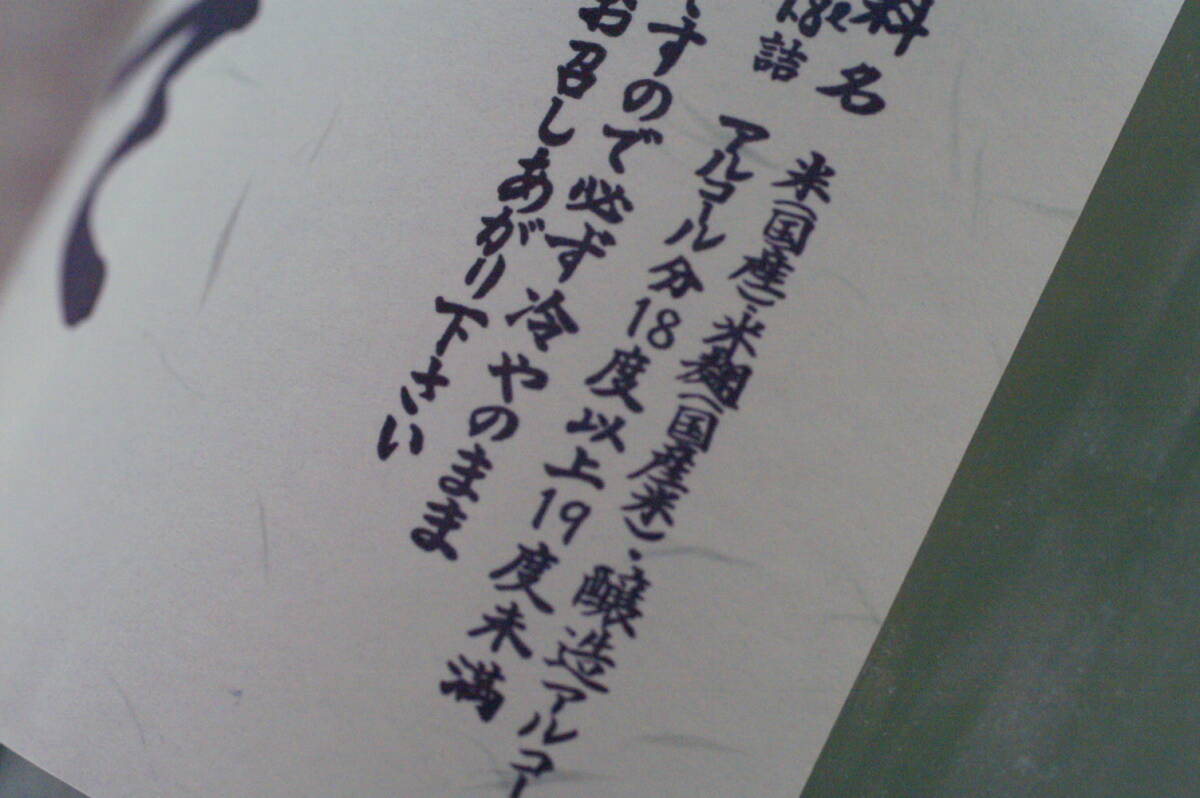 料名 米(国産)・米麹(国産米)・醸造アルコー
詰 アルコール分18度以上19度未満
ですので必ず冷やのまま
お召しあがり下さい